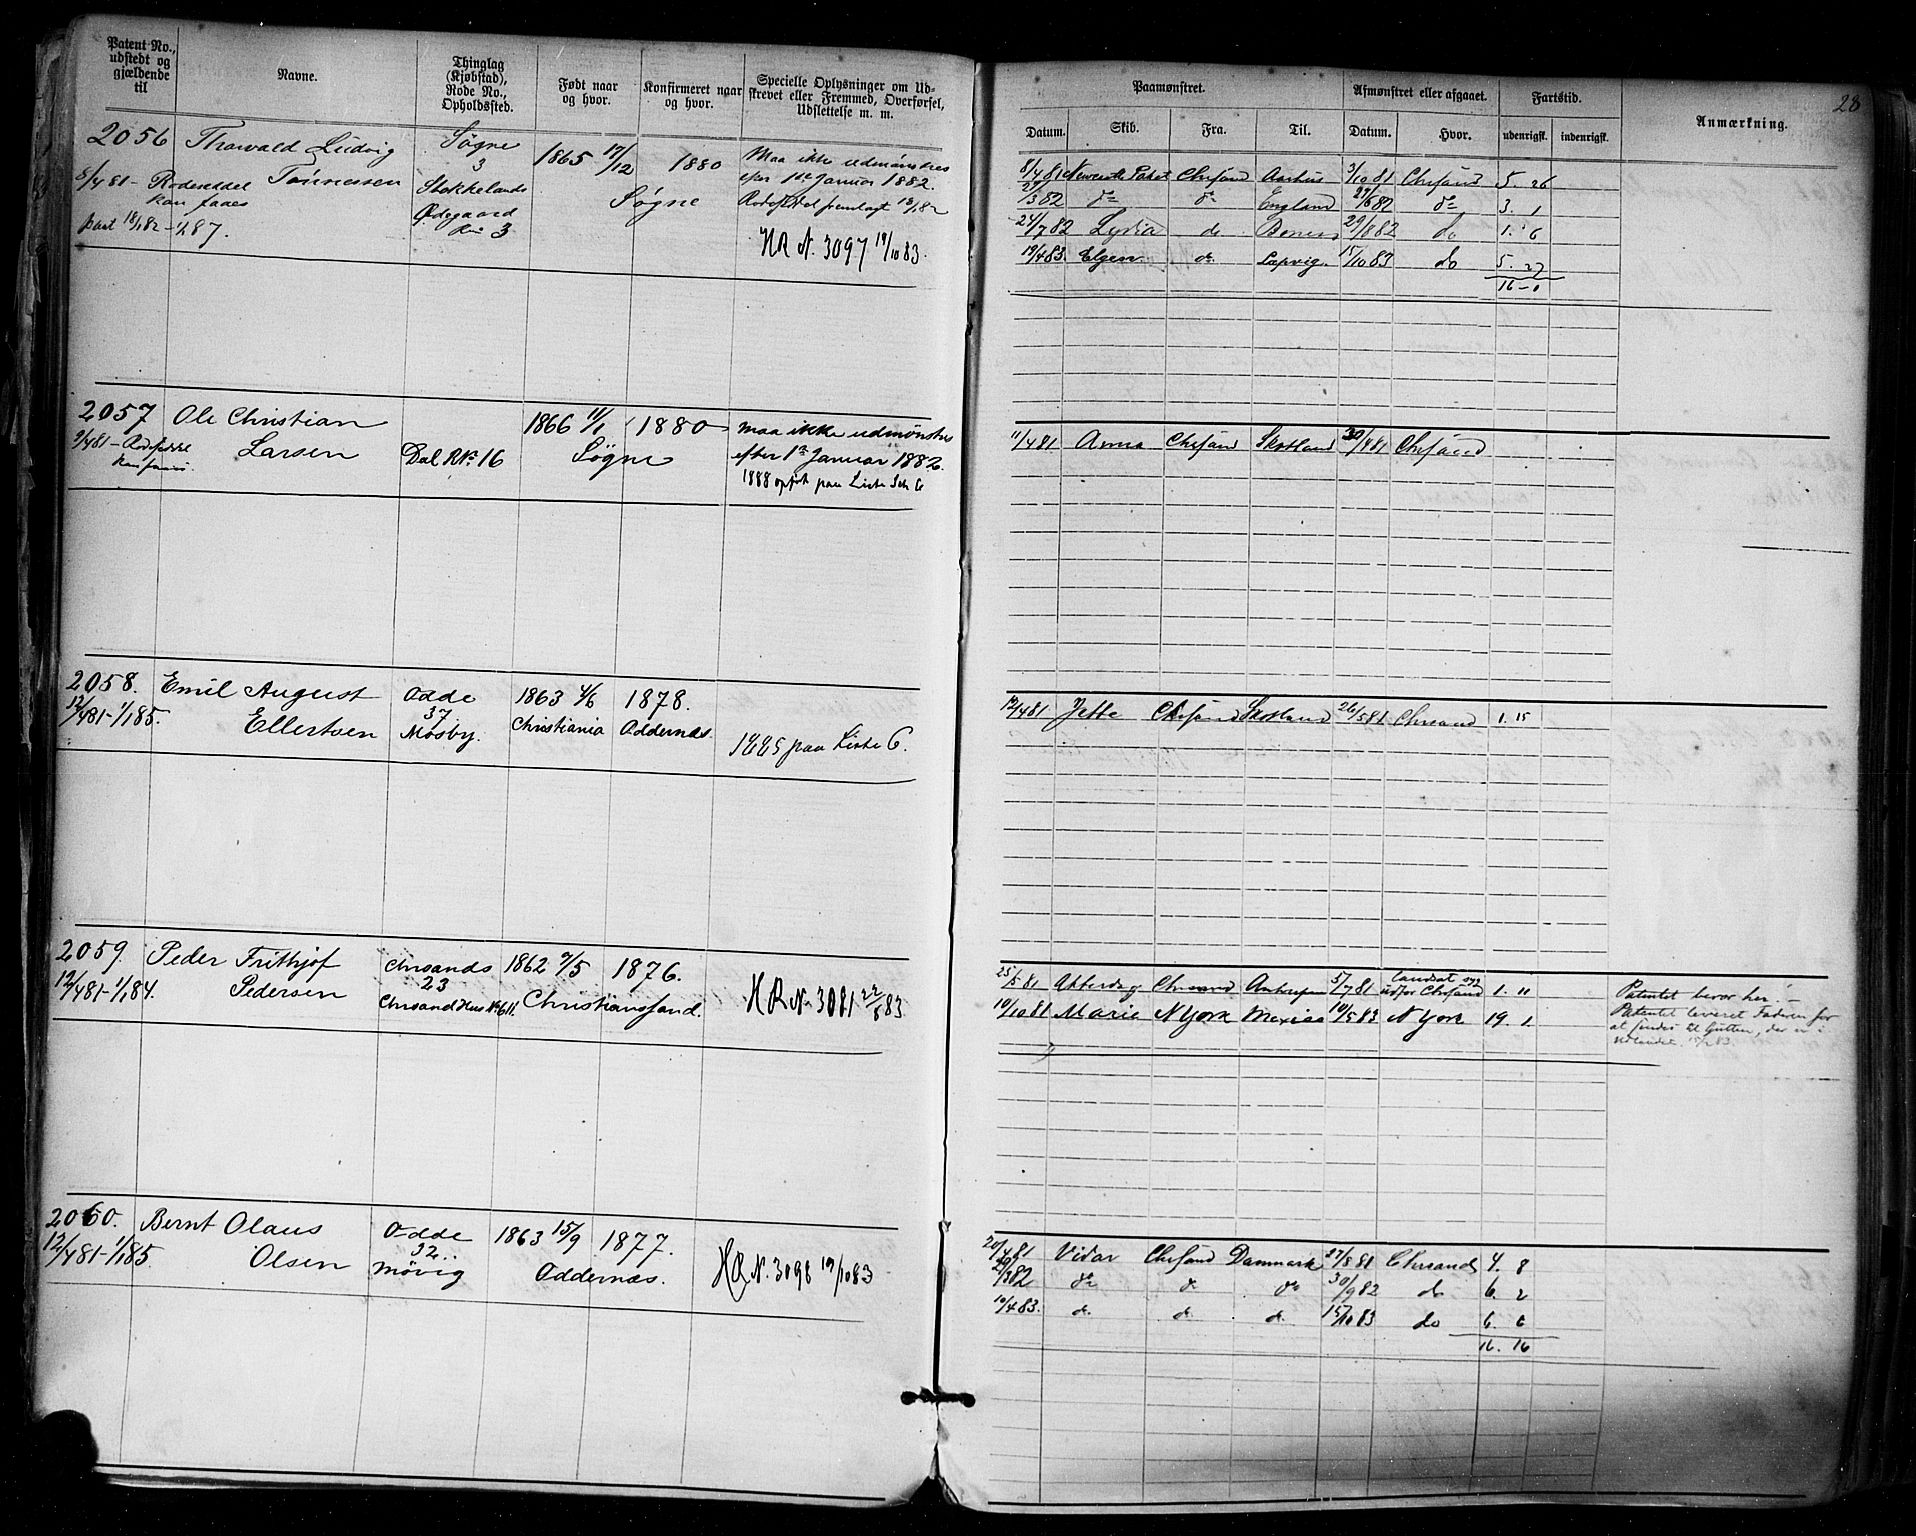 Patent No., udstedt og gjældende til
Navne.
Thinglag (Kjøbstad), Rode No., Opholdssted.
Født naar og hvor.
Konfirmeret naar og hvor.
Specielle Oplysninger om Udskrevet eller Fremmed, Overførsel, Udslettelse m. m.
Paamønstret.
Afmønstret eller afgaaet.
Fartstid.
Anmærkning.
28
Datum. Skib. Fra. Til. Datum. Hvor. udenrigsk. indenrigsk.
2056 Thorvald Ludvig Søgne 1865 17/12 1880 Maa ikke udmønstres
8/4 81 - Rodeseddel Tønnessen 3 efter 1ste Januar 1882.
kan faaes Stokkelands Søgne Rodeseddel fremlagt 18/1 82
Ødegaard
18/1 82 - 1/1 87. 3 HR N. 3097 19/10 83.
8/4 81 Newcastle Paket Chrsand Aarhus 3/10 81 Chrsand 5. 26
27/3 82 do do England 27/6 82 do 3. 1
24/7 82 Lydia do 29/8 82 do 1. 6
19/4 83 Elgen do 15/10 83 do 5. 27
16 - 0
2057 Ole Christian 1866 11/1 1880 maa ikke udmønstres
9/4 81 - Larsen Dal R No 16 Søgne efter 1ste Januar 1882.
1888 opført paa Liste
11/4 81 Anna Chrsand Skotland 30/4 81 Chrsand
2058. Emil August Odde 1863 4/6 1878.
12/4 81 - 1/1 85. Ellertsen 37 Christiania Oddernæs.
Mosby. 1885 paa Liste 6.
12/4 81 Jette Chrsand Skotland 26/5 81 Chrsand 1. 15
2059. Peder Frithjof Chrsands 1862 9/5 1876.
12/4 81 - 1/1 84. Pedersen 23 Christianssand. HR No 3081 22/8 83.
Chrsand Hus No 611.
25/5 81 Chrsand Antwerpen 5/7 81 udfor Chrsand 1. 11 Patentet beror her! -
10/10 81 Maria N York Mexico 10/5 83 N York 19. 1. Patentet leveret Faderen for
at sendes til Gutten, der er i
Udlandet.
2060. Bernt Olaus Odde 1863 15/9 1877.
12/4 81 - 1/1 85. Olsen 32 Oddernæs. HR N. 3098 19/10 83
Møvig
20/4 81 Vidar Chrsand Danmark 27/8 81 Chrsand 4. 8
29/3 82 do do do 30/9 82 do 6. 2
10/4 83. do do do 15/10 83 do 6. 6
16. 16